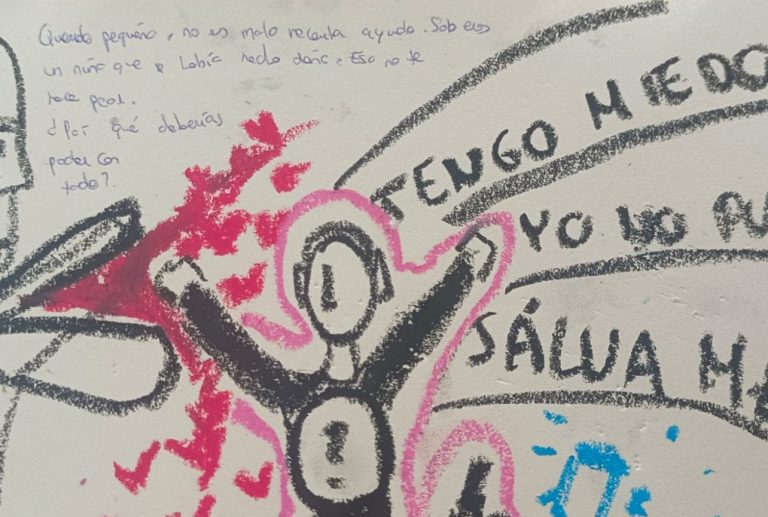 Querido pequeño, no es malo necesitar ayuda. Solo eres
un niño que había hecho daño. Eso no te
hace peor.
¿Por qué deberías
poder con
todo?
TENGO MIEDO
YO NO
SÁLVA